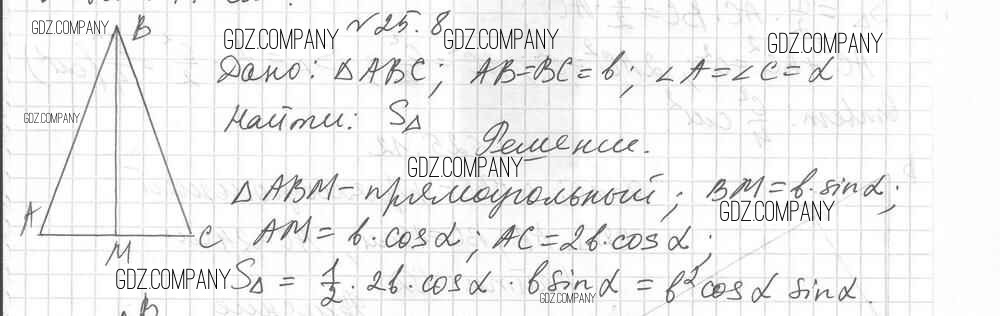 GDZ.COMPANY B N 25.8 GDZ.COMPANY GDZ.COMPANY GDZ.COMPANY
Дано: △ABC; AB=BC=b; ∠A=∠C=α
GDZ.COMPANY
Найти: S△
Решение.
GDZ.COMPANY
△ABM - прямоугольный; BM=b·sinα;
GDZ.COMPANY
A M C AM = b·cosα; AC=2b·cosα;
GDZ.COMPANY S△ = 1/2 · 2b·cosα · b sinα = b² cosα sinα.
GDZ.COMPANY
B